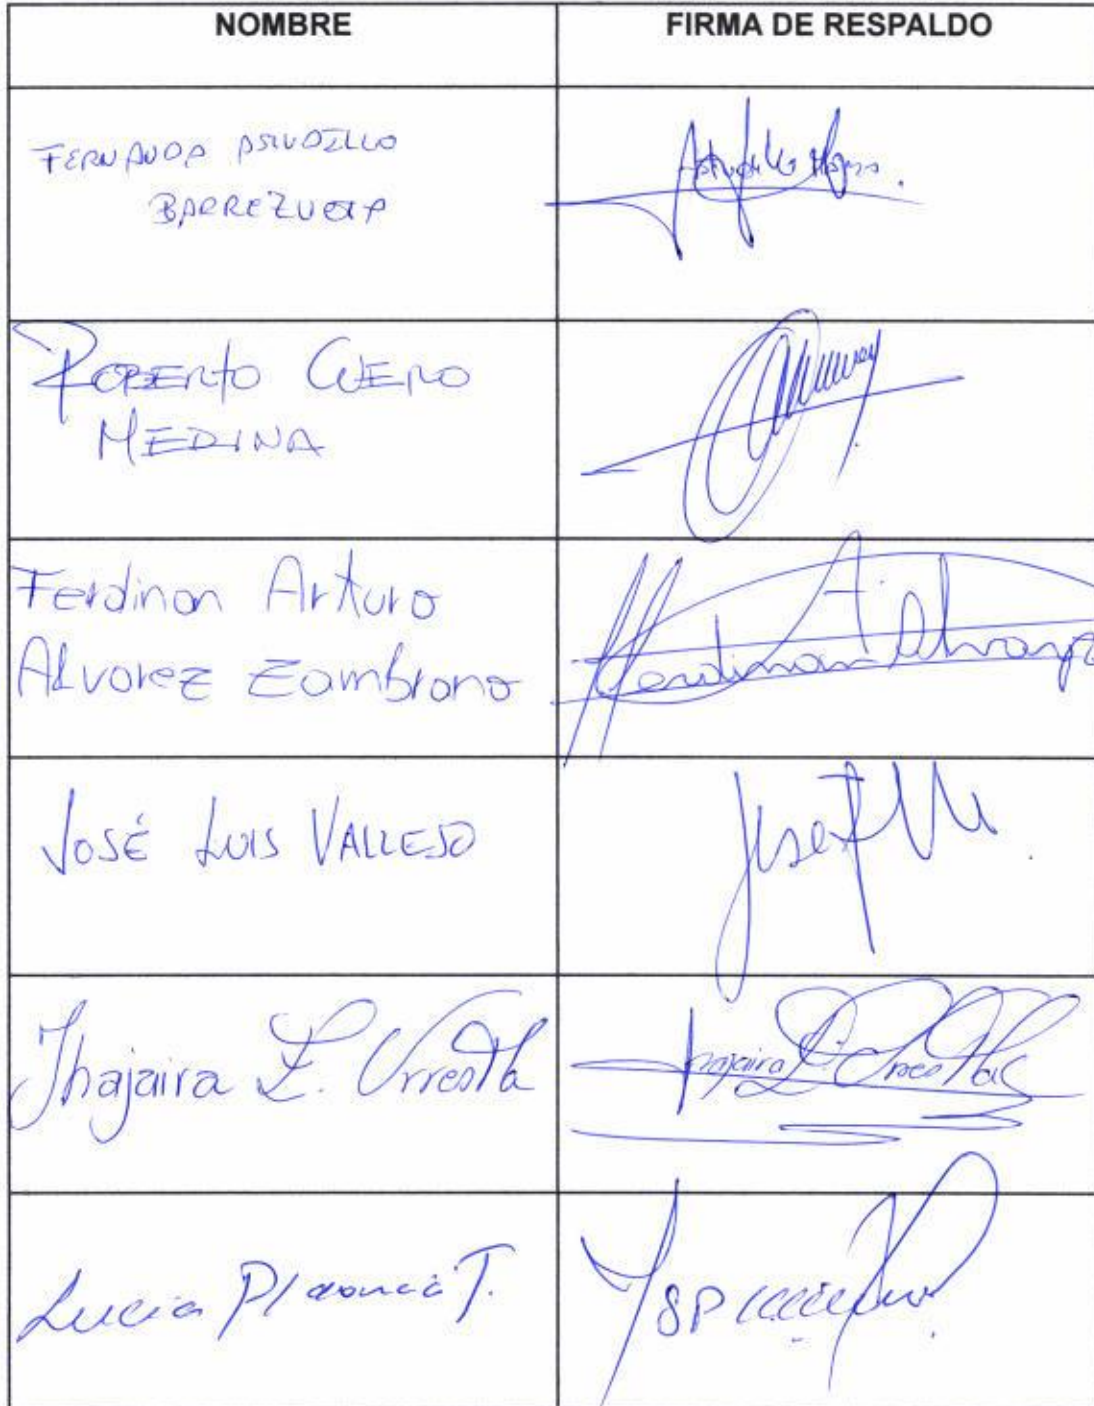 NOMBRE FIRMA DE RESPALDO
FERNANDA ASTUDILLO
BARREZUETA
ROBERTO CUERO
MEDINA
Ferdinan Arturo
Alvarez Zambrano
Ferdinan Alvarez
JOSÉ LUIS VALLEJO
José
Jhajaira L. Urresta
Jhajaira L. Urresta
Lucia Placencia T.